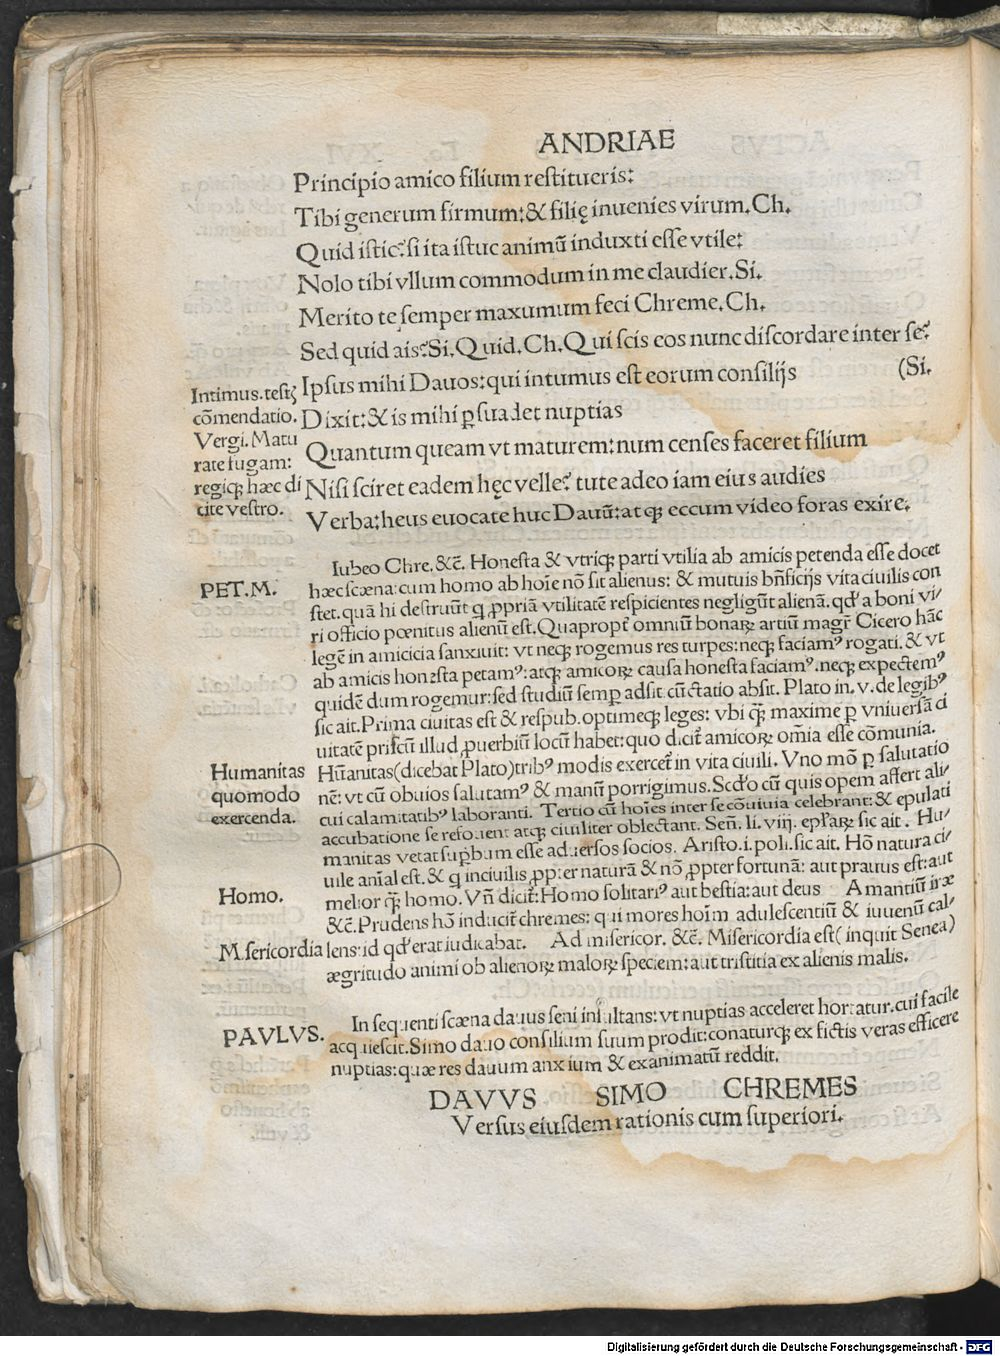 ANDRIAE
Principio amico filium restitueris:
Tibi generum firmum: & filię inuenies virum. Ch.
Quid istic? si ita istuc animū induxti esse vtile:
Nolo tibi vllum commodum in me claudier. Si.
Merito te semper maxumum feci Chreme. Ch.
Sed quid ais? Si. Quid. Ch. Qui scis eos nunc discordare inter se?
Ipsus mihi Dauos: qui intumus est eorum consilijs (Si.
Dixit: & is mihi ꝑsuadet nuptias
Quantum queam vt maturem: num censes faceret filium
Nisi sciret eadem hęc velle? tute adeo iam eius audies
Verba: heus euocate huc Dauū: atꝗ eccum video foras exire.
Intimus. testꝫ
cōmendatio.
Vergi. Matu
rate fugam:
regiqꝫ hæc di
cite vestro.
PET. M.
Iubeo Chre. &c̄. Honesta & vtriqꝫ parti vtilia ab amicis petenda esse docet
hæc scæna: cum homo ab hoīe nō sit alienus: & mutuis bn̄ficijs vita ciuilis con
stet. quā hi destruūt q ꝓpriā vtilitatē respicientes negligūt alienā. qd' a boni vi/
ri officio pœnitus alienū est. Quapropt̄ omniū bonaꝝ artiū magr̄ Cicero hāc
legē in amicicia sanxiuit: vt neqꝫ rogemus res turpes: neqꝫ faciamꝰ rogati. & vt
ab amicis honesta petamꝰ: atqꝫ amicoꝝ causa honesta faciamꝰ. neqꝫ expectemꝰ
quidē dum rogemur: sed studiū semꝑ adsit cūctatio absit. Plato in. v. de legibꝰ
sic ait. Prima ciuitas est & respub. optimeqꝫ leges: vbi qꝫ maxime ꝑ vniuersā ci
uitatē priscū illud ꝓuerbiū locū habet: quo dicit̄ amicoꝝ om̄ia esse cōmunia.
Humanitas
quomodo
exercenda.
Hūanitas (dicebat Plato) tribꝰ modis exercet̄ in vita ciuili. Vno mō ꝑ salutatio
nē: vt cū obuios salutamꝰ & manū porrigimus. Scd'o cū quis opem affert ali/
cui calamitatibꝰ laboranti. Tertio cū hoīes inter se cōuiuia celebrant: & epulati
accubatione se refouent atqꝫ ciuiliter oblectant. Sen̄. li. viij. epl'aꝝ sic ait. Hu/
manitas vetat suꝑbum esse aduersos socios. Aristo. i. poli. sic ait. Hō natura ci/
uile anīal est. & q inciuilis ꝓpter naturā & nō ꝓpter fortunā: aut prauus est: aut
Homo.
melior qꝫ homo. Vn̄ dicit̄: Homo solitariꝰ aut bestia: aut deus Amantiū iræ
&c̄. Prudens hō inducit̄ chremes: qui mores hoīm adulescentiū & iuuenū cal/
Misericordia
lens: id qd' erat iudicabat. Ad misericor. &c̄. Misericordia est (inquit Senea)
ægritudo animi ob alienoꝝ maloꝝ speciem: aut tristitia ex alienis malis.
PAVLVS.
In sequenti scæna dauus seni insultans: vt nuptias acceleret hortatur. cui facile
acquiescit. Simo dauo consilium suum prodit: conaturqꝫ ex fictis veras efficere
nuptias: quæ res dauum anxium & exanimatū reddit.
DAVVS SIMO CHREMES
Versus eiusdem rationis cum superiori.
Digitalisierung gefördert durch die Deutsche Forschungsgemeinschaft - DFG